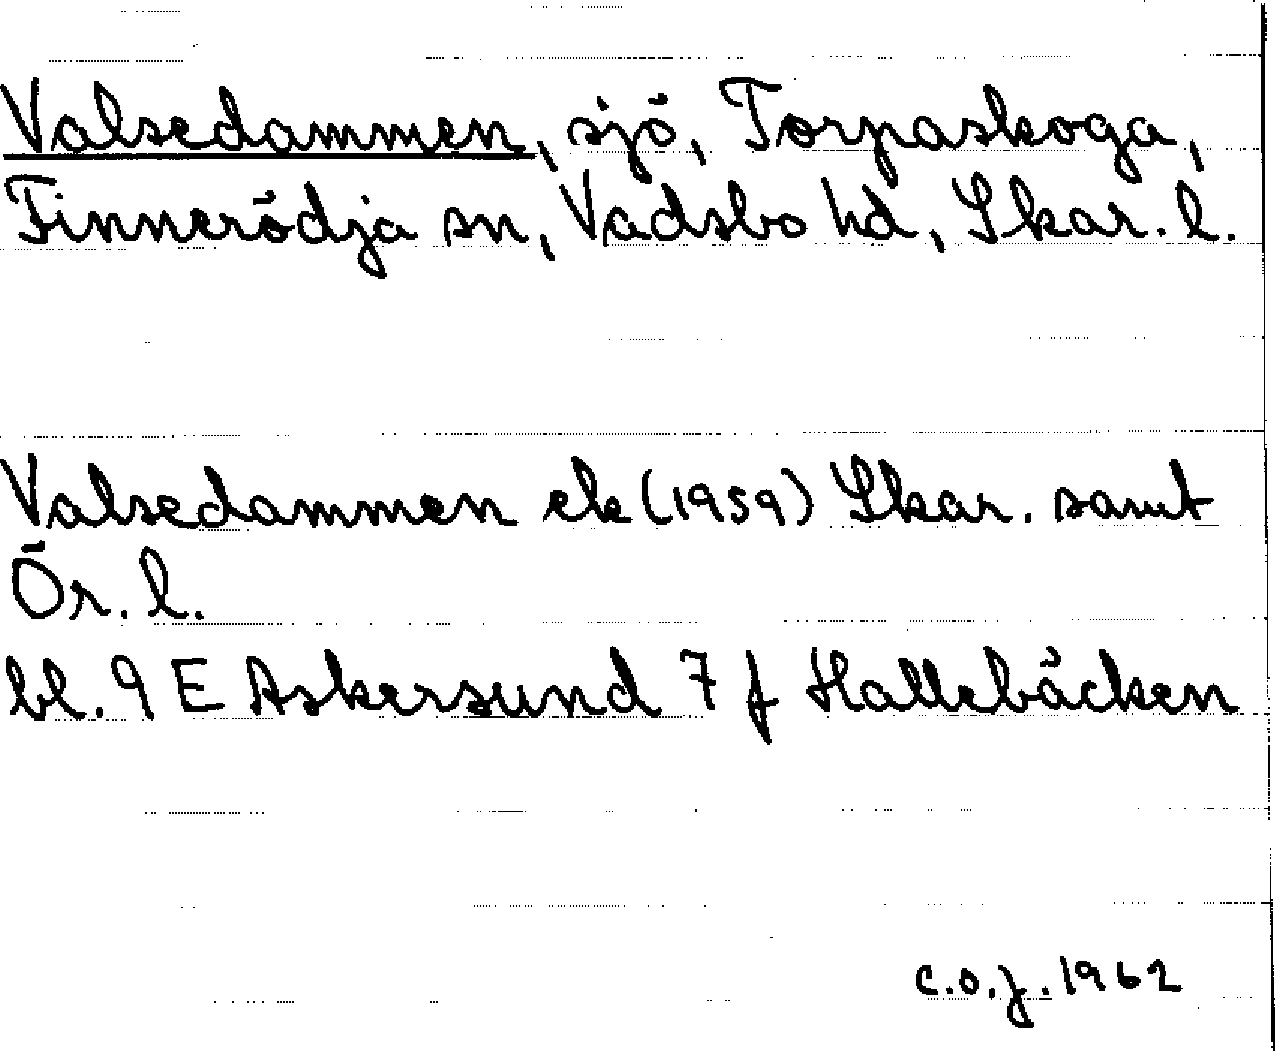 Valsedammen, sjö, Torpaskoga,
Finnerödja sn, Vadsbo hd, Skar. l.
Valsedammen ek (1959) Skar. samt
Ör. l.
bl. 9 E Askersund 7 f Hallebäcken
C.O.J. 1962